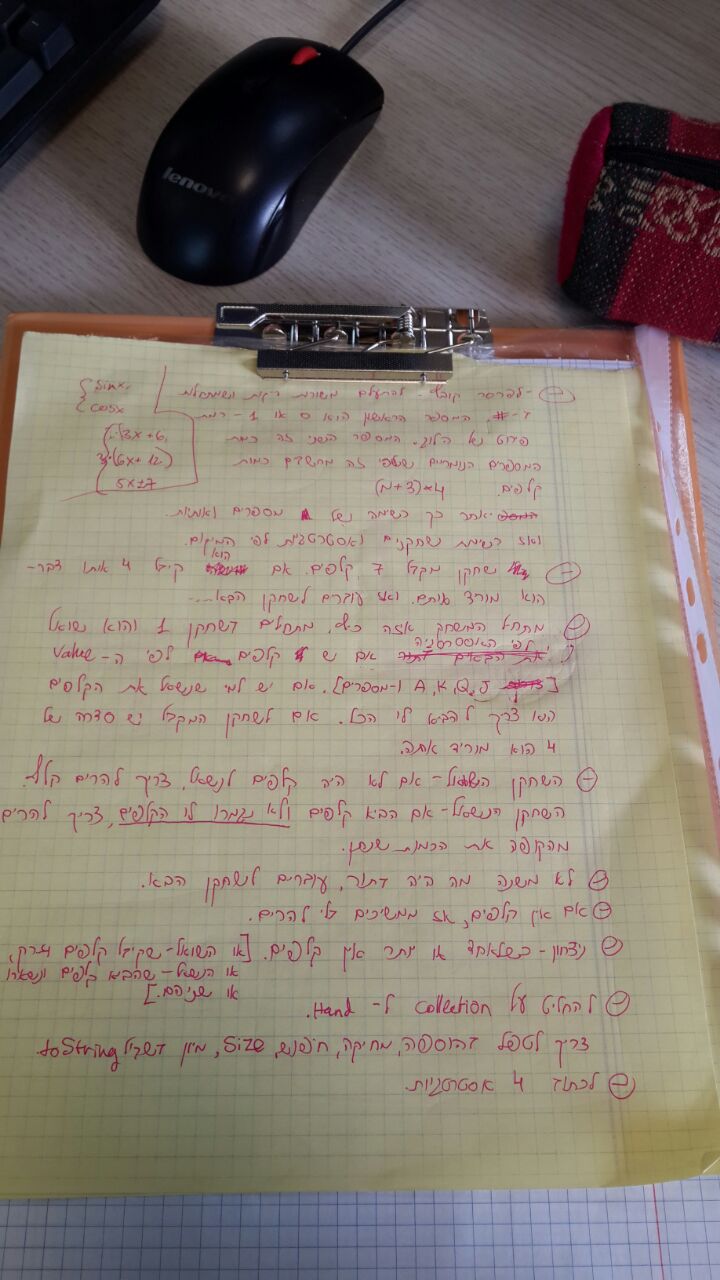 lenovo
{ sinx,
cosx
3x+6,
3·(6x+12)
5x±7
- לפרסר קובץ - להתעלם משורות ריקות ושמתחילות
ב-#. המספר הראשון הוא 0 או 1 - רמת
פירוט של הלוג. המספר השני זה כמות
המספרים הנומריים שלפי זה מחשבים כמות
קלפים. (n+3)*4
אחר כך רשימה של מספרים ואותיות.
ואז רשימת שחקנים ואסטרטגיות לפי המיקום.
- שחקן מקבל 7 קלפים. אם הוא קיבל 4 אותו דבר-
הוא מוריד אותם. ואז עוברים לשחקן הבא...
- מתחיל המשחק, מתחילים בשחקן 1 והוא שואל
לפי האסטרטגיה
אם יש קלפים לפי ה-value
[J, Q, K, A ו-מספרים]. אם יש למי שנשאל את הקלפים
הוא צריך להביא לו הכל. אם לשחקן המקבל יש סדרה של
4 הוא מוריד אותה.
- השחקן השואל- אם לא היה קלפים לנשאל, צריך להרים קלף.
השחקן הנשאל- אם הביא קלפים ולא נגמרו לו הקלפים, צריך להרים
מהקופה את הכמות שנתן.
- לא משנה מה היה בתור, עוברים לשחקן הבא.
- אם אין קלפים, אז ממשיכים בלי להרים.
- ניצחון - כשלאחד או יותר אין קלפים. [או השואל- שקיבל קלפים וזרק,
או הנשאל- שהביא קלפים
או שניהם.]
- להחליט על collection ל-Hand.
צריך לטפל בהוספה, מחיקה, חיפוש, size, מיון בשביל toString
- לכתוב 4 אסטרטגיות.